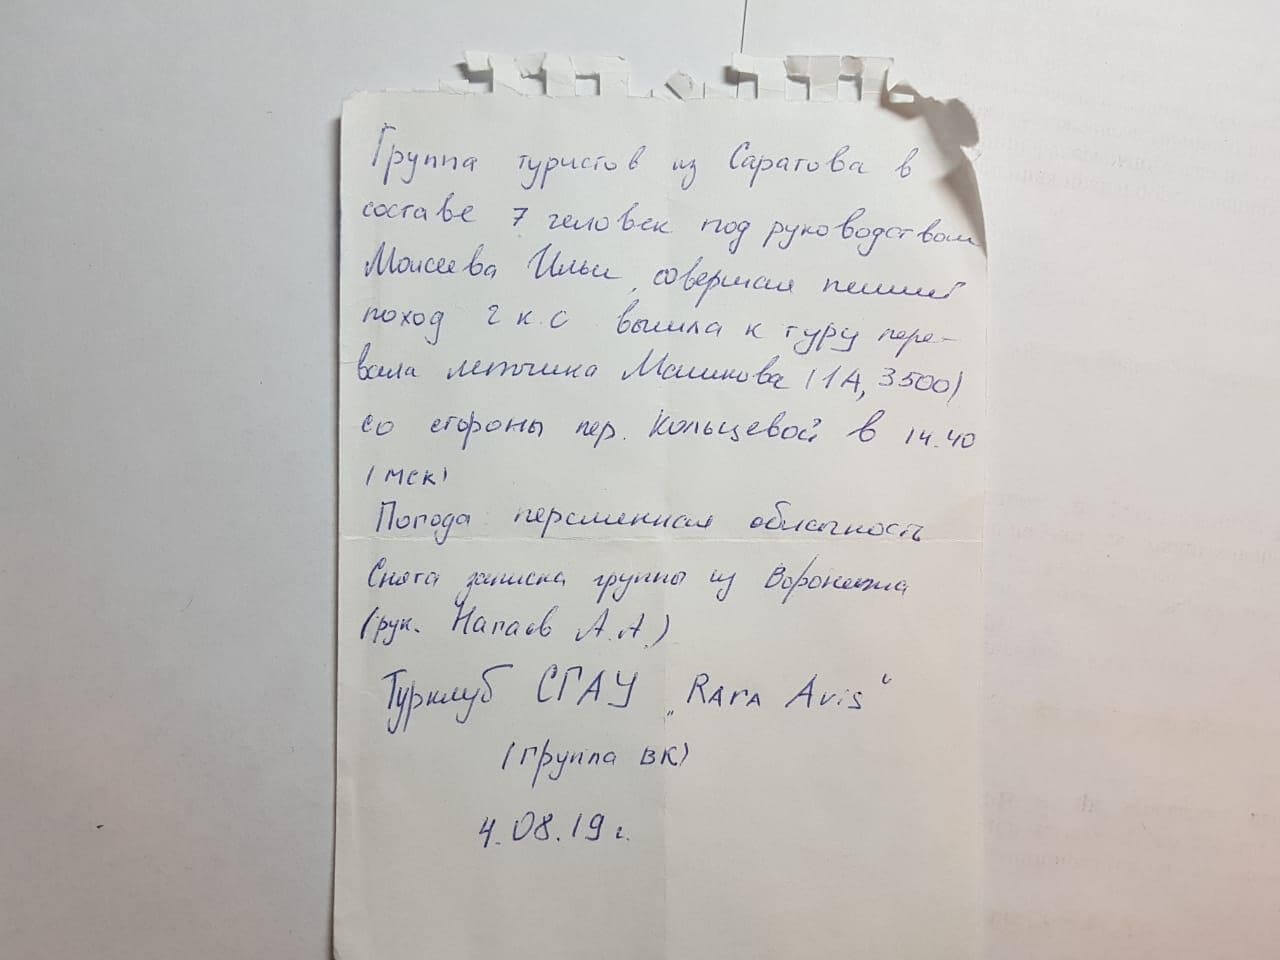 Группа туристов из Саратова в
составе 7 человек под руководством
Моисеева Ильи, совершая пеший
поход 2 к.с вышла к туру пере-
вала летчика Машкова (1А, 3500)
со стороны пер. Кольцевой в 14.40
(мск)
Погода переменная облачность
Снята записка группы из Воронежа
(рук. Напаев А.А.)
Турклуб СГАУ „Rara Avis“
(группа ВК)
4.08.19 г.